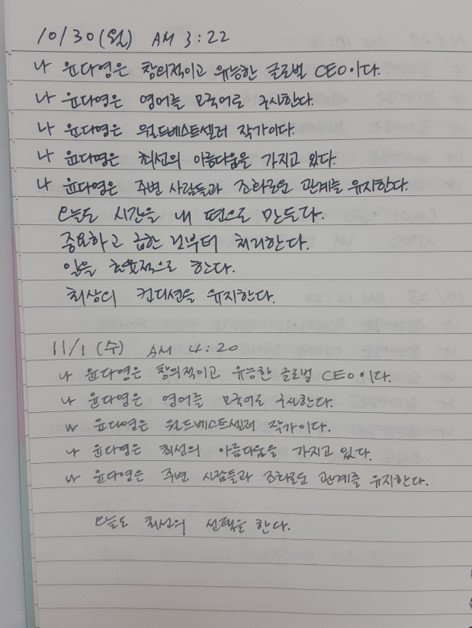 10/30(월) AM 3:22
나 윤다영은 창의적이고 유능한 글로벌 CEO이다.
나 윤다영은 영어를 모국어로 구사한다.
나 윤다영은 월드베스트셀러 작가이다.
나 윤다영은 최선의 아름다움을 가지고 있다.
나 윤다영은 주변 사람들과 조화로운 관계를 유지한다.
오늘도 시간을 내 편으로 만든다.
중요하고 급한 것부터 처리한다.
일을 효율적으로 한다.
최상의 컨디션을 유지한다.
11/1(수) AM 4:20
나 윤다영은 창의적이고 유능한 글로벌 CEO이다.
나 윤다영은 영어를 모국어로 구사한다.
나 윤다영은 월드베스트셀러 작가이다.
나 윤다영은 최선의 아름다움을 가지고 있다.
나 윤다영은 주변 사람들과 조화로운 관계를 유지한다.
오늘도 최선의 선택을 한다.